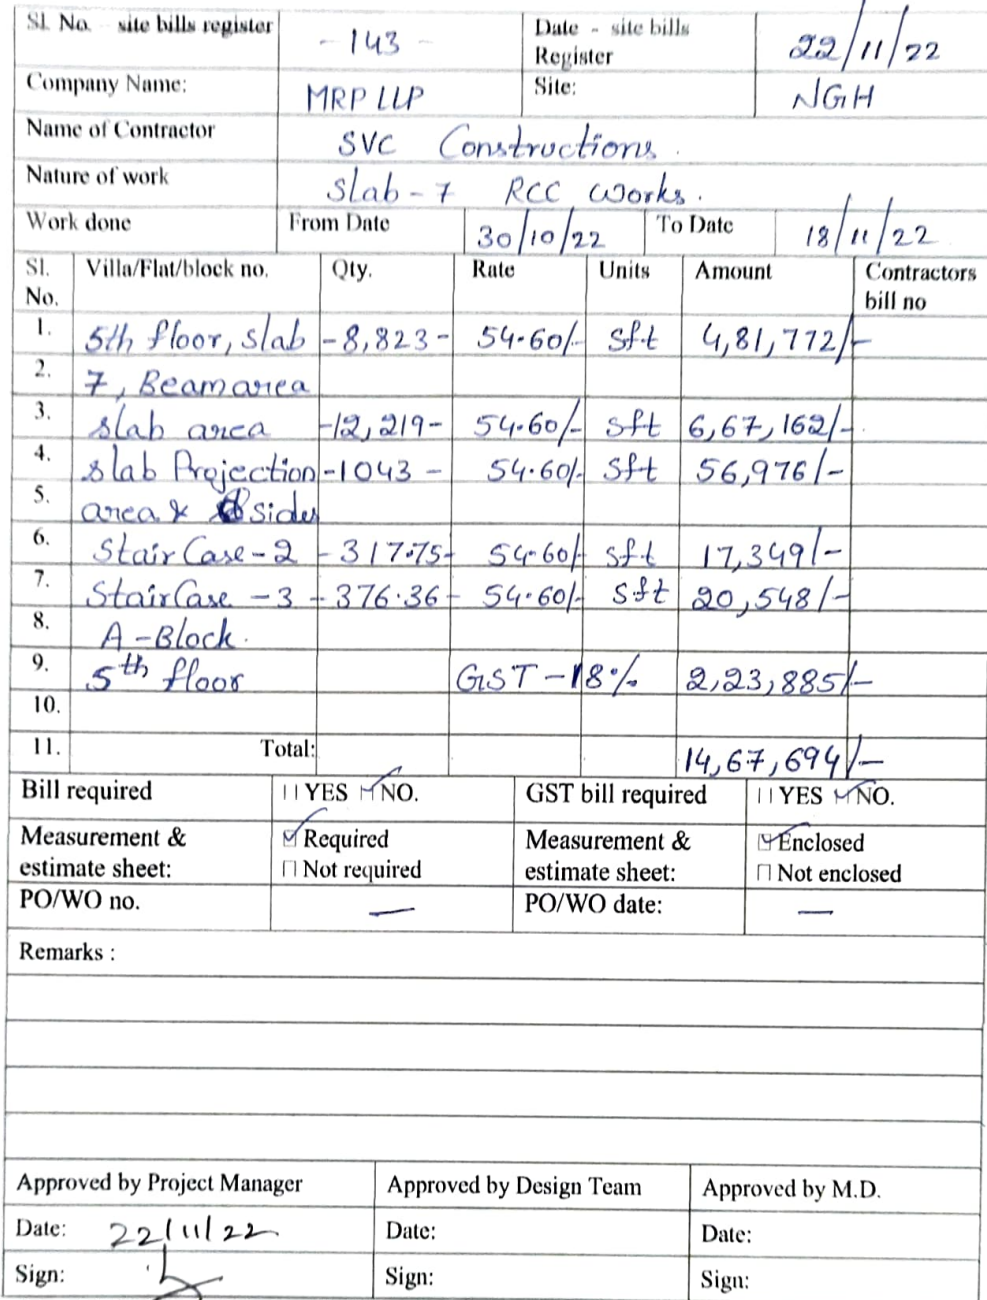 Sl. No. - site bills register - 143 - Date - site bills Register 22/11/22
Company Name: MRP LLP Site: NGH
Name of Contractor SVC Constructions.
Nature of work Slab-7 RCC Works.
Work done From Date 30/10/22 To Date 18/11/22
Sl. No. Villa/Flat/block no. Qty. Rate Units Amount Contractors bill no
1. 5th floor, Slab -8,823- 54.60/- Sft 4,81,772/-
2. 7, Beam area
3. Slab area -12,219- 54.60/- Sft 6,67,162/-
4. Slab Projection -1043- 54.60/- Sft 56,976/-
5. area & sides
6. StairCase-2 -317.75- 54.60/- Sft 17,349/-
7. StairCase-3 -376.36- 54.60/- Sft 20,548/-
8. A-Block.
9. 5th floor GST-18% 2,23,885/-
10.
11. Total: 14,67,694/-
Bill required YES NO. GST bill required YES NO.
Measurement & estimate sheet: Required Measurement & estimate sheet: Enclosed
Not required Not enclosed
PO/WO no. — PO/WO date: —
Remarks :
Approved by Project Manager Approved by Design Team Approved by M.D.
Date: 22/11/22 Date: Date:
Sign: Sign: Sign: